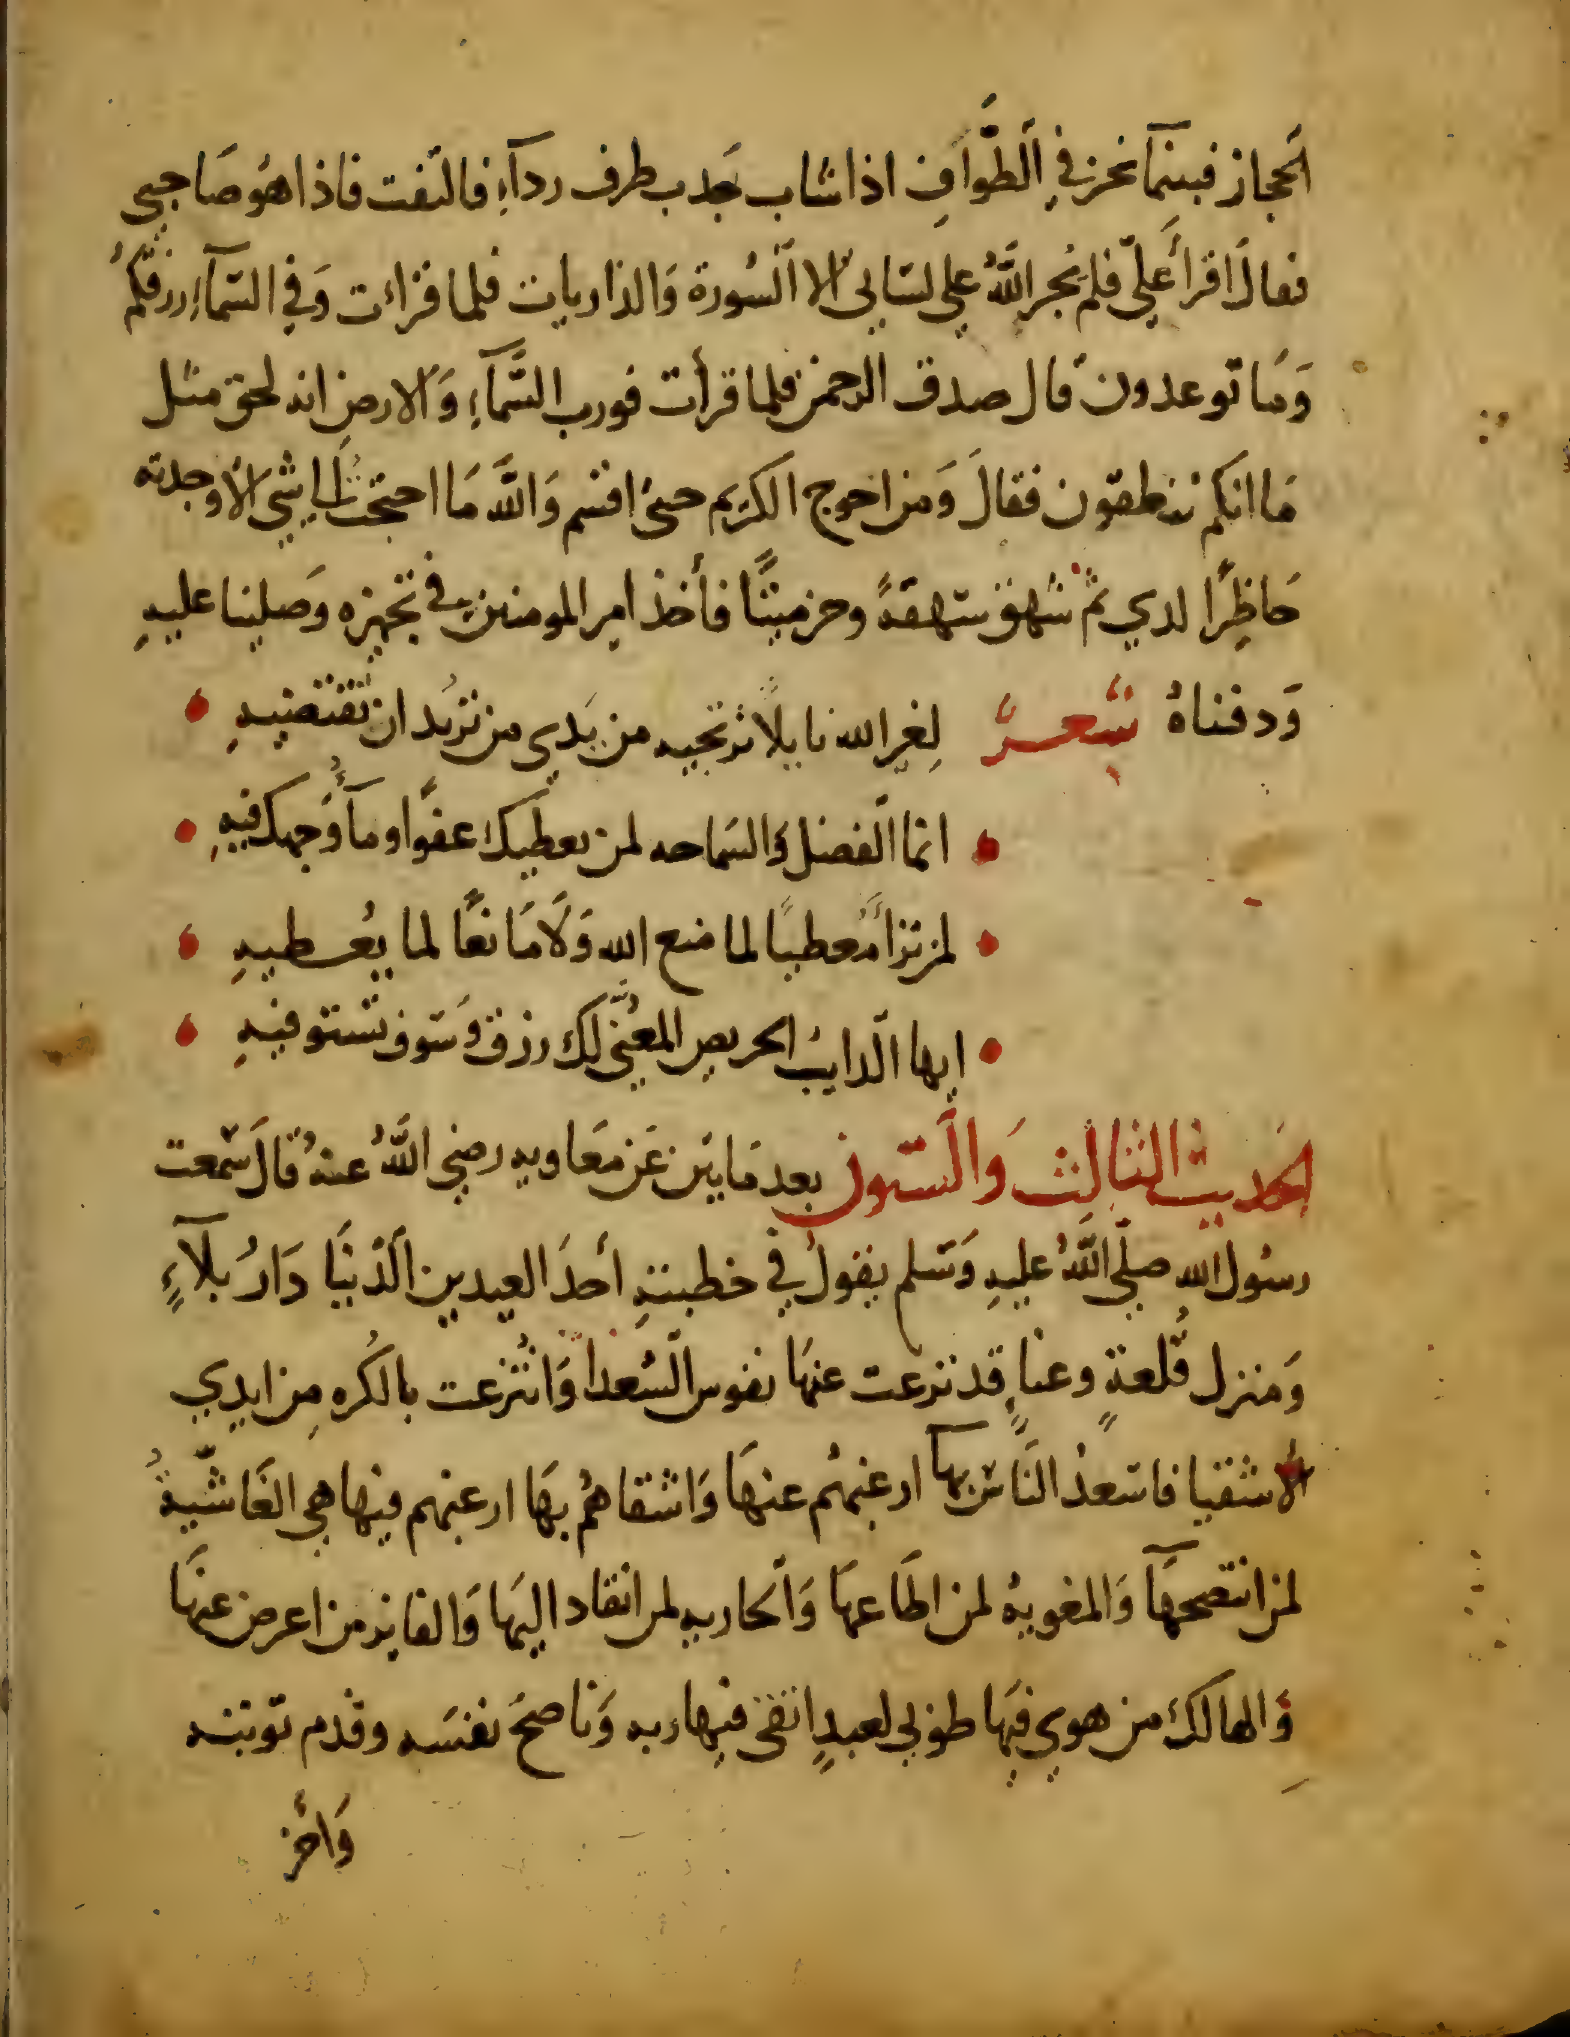 الحجاز فبينمآ نحن في الطَّوافِ اذا شاب جَذب طرف ردآءِ فالتفت فاذا هوَ صَاحبي
فعالَ اقرأ عَليّ فلم يُجرِ اللَّهُ علي لسَاني الا السُورة وَالذاريات فلما قراءت وَفي السّمآءِ رزقكمُ
وَمَا توعدون قال صدق الرحمن فلما قرأت فورب السَّمآءِ وَالارضِ انه لحق مثل
مَا انكم تنطقون فقالَ وَمن احوج الكريم حتىَ اقسم وَاللَّه مَا احتجتُ الي شيَ الا وجدته
حَاظِرًا لدي ثمَّ شهق شهقةً وخر ميتًا فأخذ امير المومنين في تجهيزه وَصلينا عليهِ
وَدفناهُ شعرٌ لِغير الله نايلًا ترتجيه من يَدي من تريُد ان تقتضيهِ
انما الفضل وَالسَماحه لمن يعطيك عفوًا ومآءُ وَجهك فيهِ
لمن تزَا مُعطيًا لما منع الله وَلَا مَانعًا لما يُعطيهِ
ايها الدايبُ الحريص المعُنّي لك رزق وَسَوف تستوفيهِ
الحَديث الثالث وَالستون بعد مَايتَين عَن معَاويه رضي اللَّهُ عنهُ قالَ سَمعت
رسُول الله صلّي اللَّهُ عليهِ وَسَلم يقولُ في خطبتهِ أحدَ العيدين الدنيَا دَارُ بلآءٍ
وَمنزل قُلعةٍ وعناٍ قد نزعت عنهَا نفوس السُعداَ وَانتُزعت بالكُره مِن ايدي
الاشقيا فاسَعدُ النَاسَ بهآ ارغبهُم عنهَا وَاشقاهُم بهَا ارغبهم فيها هي الغَاشّيةُ
لمن انتصحهَآ وَالمغويهُ لمن اطَاعهَا وَالحاربه لمن انقاد اليهَا وَالفايز من اعرض عنهَا
وَالهالكُ من هوي فيهَا طوبي لعبدٍ اتقي فيها ربه وَناصحَ نفسَه وقدم توبته
وَأخر